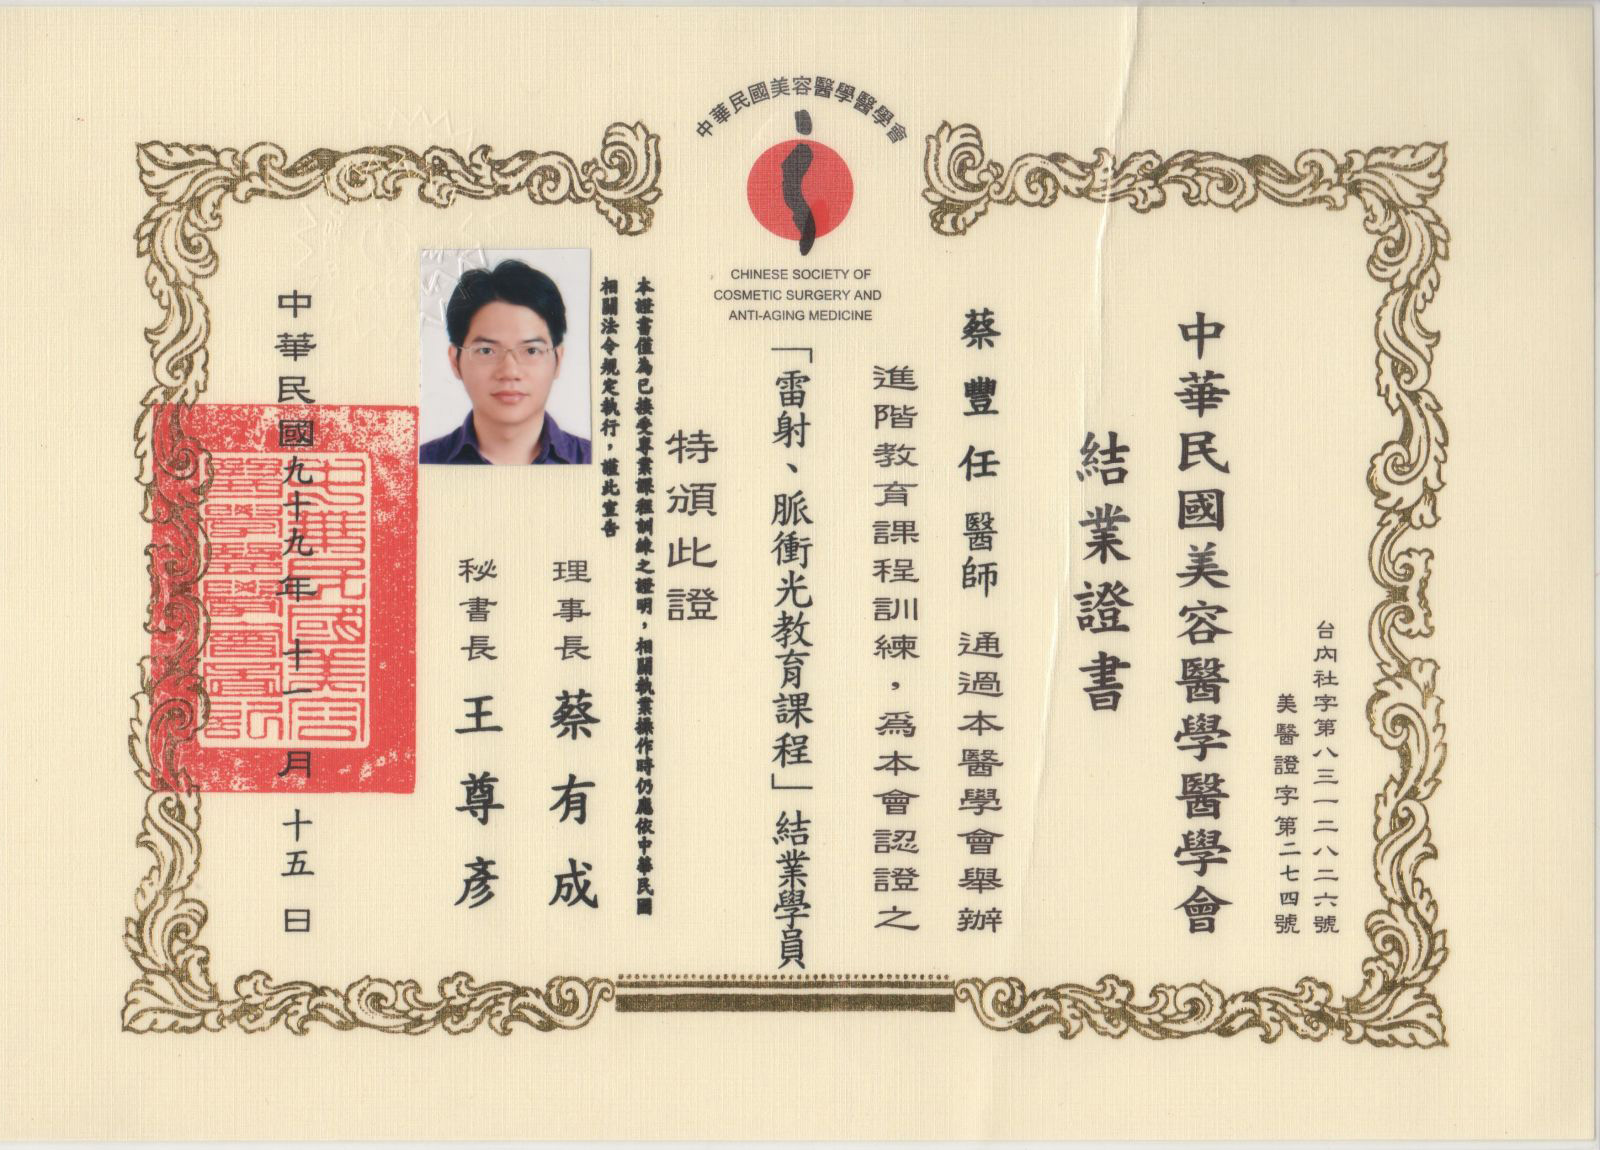 中華民國美容醫學醫學會
CHINESE SOCIETY OF
COSMETIC SURGERY AND
ANTI-AGING MEDICINE
台內社字第八三一二八二六號
美醫證字第二七四號
中華民國美容醫學醫學會
結業證書
蔡豐任醫師 通過本醫學會舉辦
進階教育課程訓練，為本會認證之
「雷射、脈衝光教育課程」結業學員
特頒此證
本證書僅為已接受專業課程訓練之證明，相關執業操作時仍應依中華民國
相關法令規定執行，謹此宣告
理事長 蔡有成
秘書長 王尊彥
中華民國九十九年十一月十五日